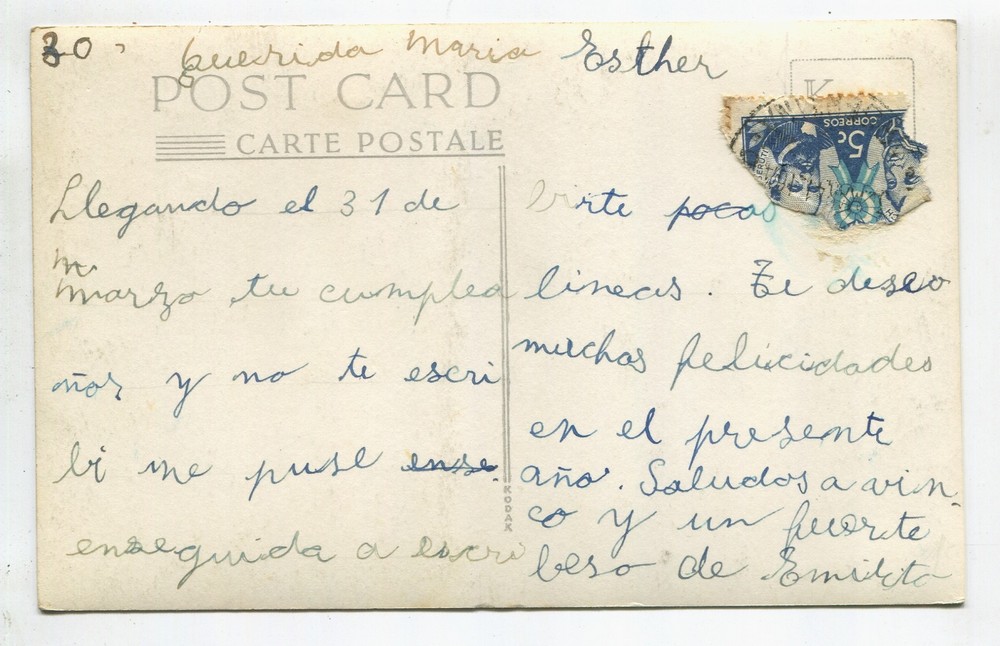 30
Querida Maria Esther
POST CARD
CARTE POSTALE
K
CORREOS
5c
Llegando el 31 de
m
marzo tu cumplea
ños y no te escri
bi me puse ense
enseguida a escri
birte pocas
lineas. Te deseo
muchas felicidades
en el presente
año. Saludos a
co y un fuerte
beso de Emilito
KODAK